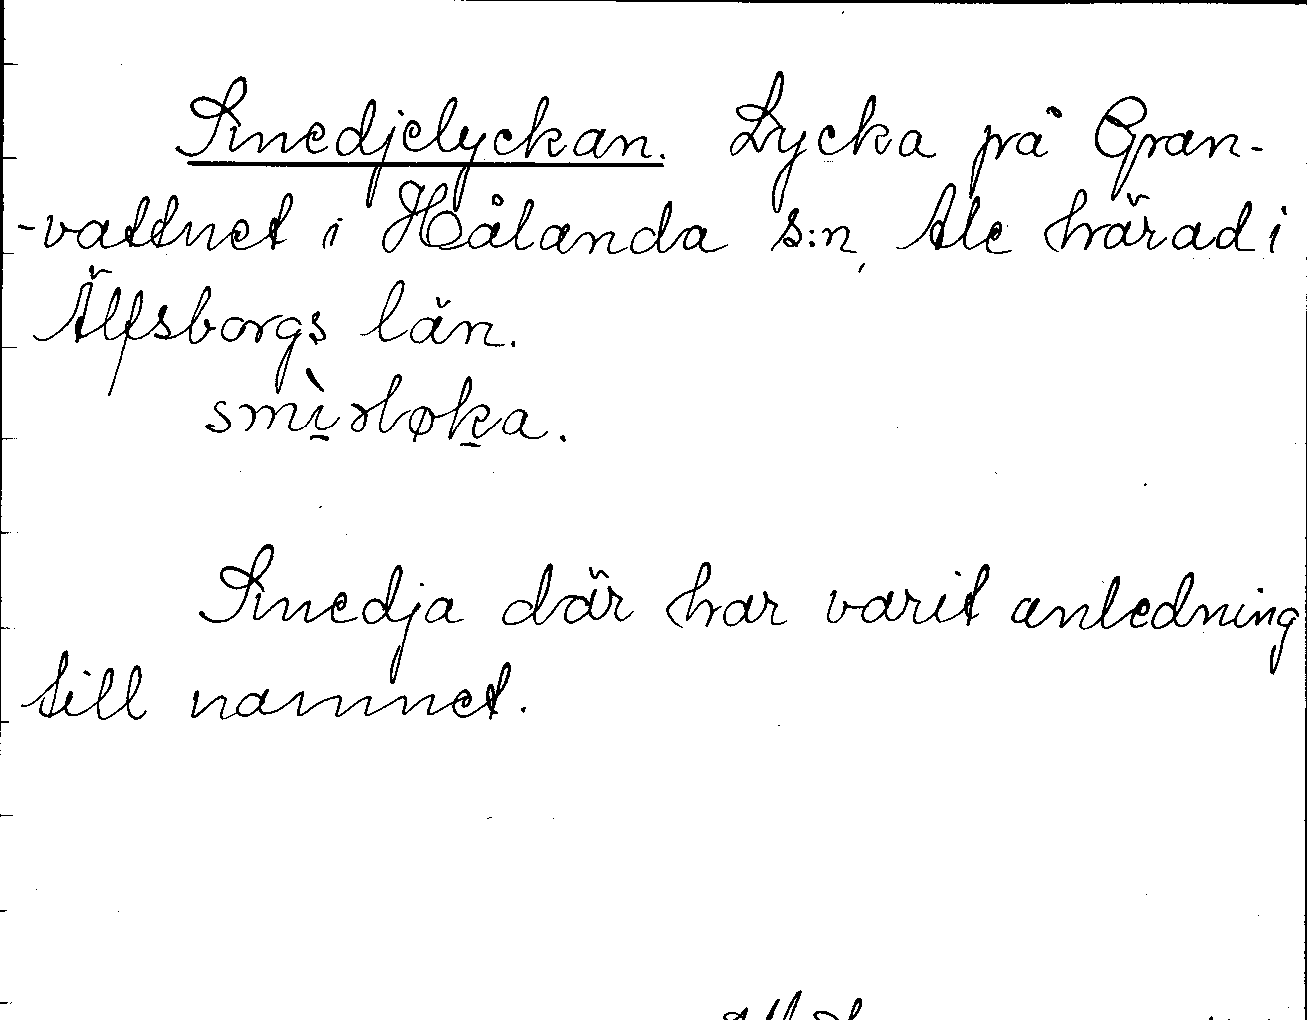 Smedjelyckan. Lycka på Gran-
-vattnet i Hålanda s:n, Ale härad i
Älfsborgs län.
smì̠əløk̠a.
Smedja där har varit anledning
till namnet.